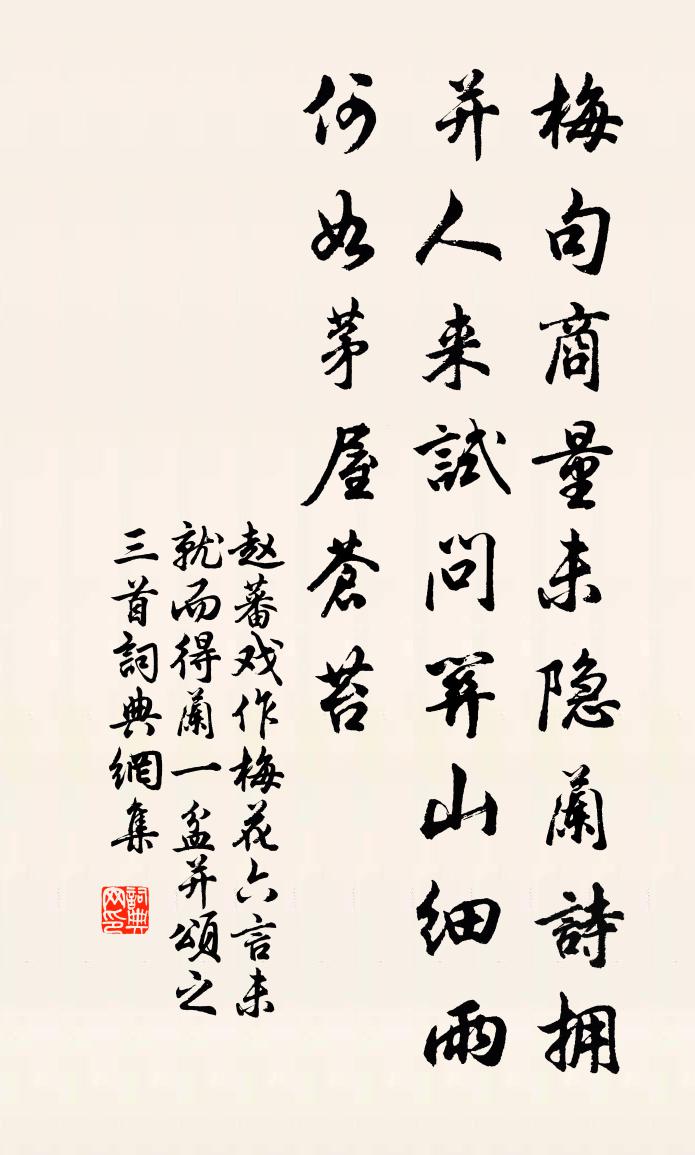 梅句商量未隐蘭詩拥
并人来試問關山细雨
何如茅屋蒼苔
赵蕃戏作梅花六言未
就而得蘭一盆并頌之
三首詞典網集
詞典网印